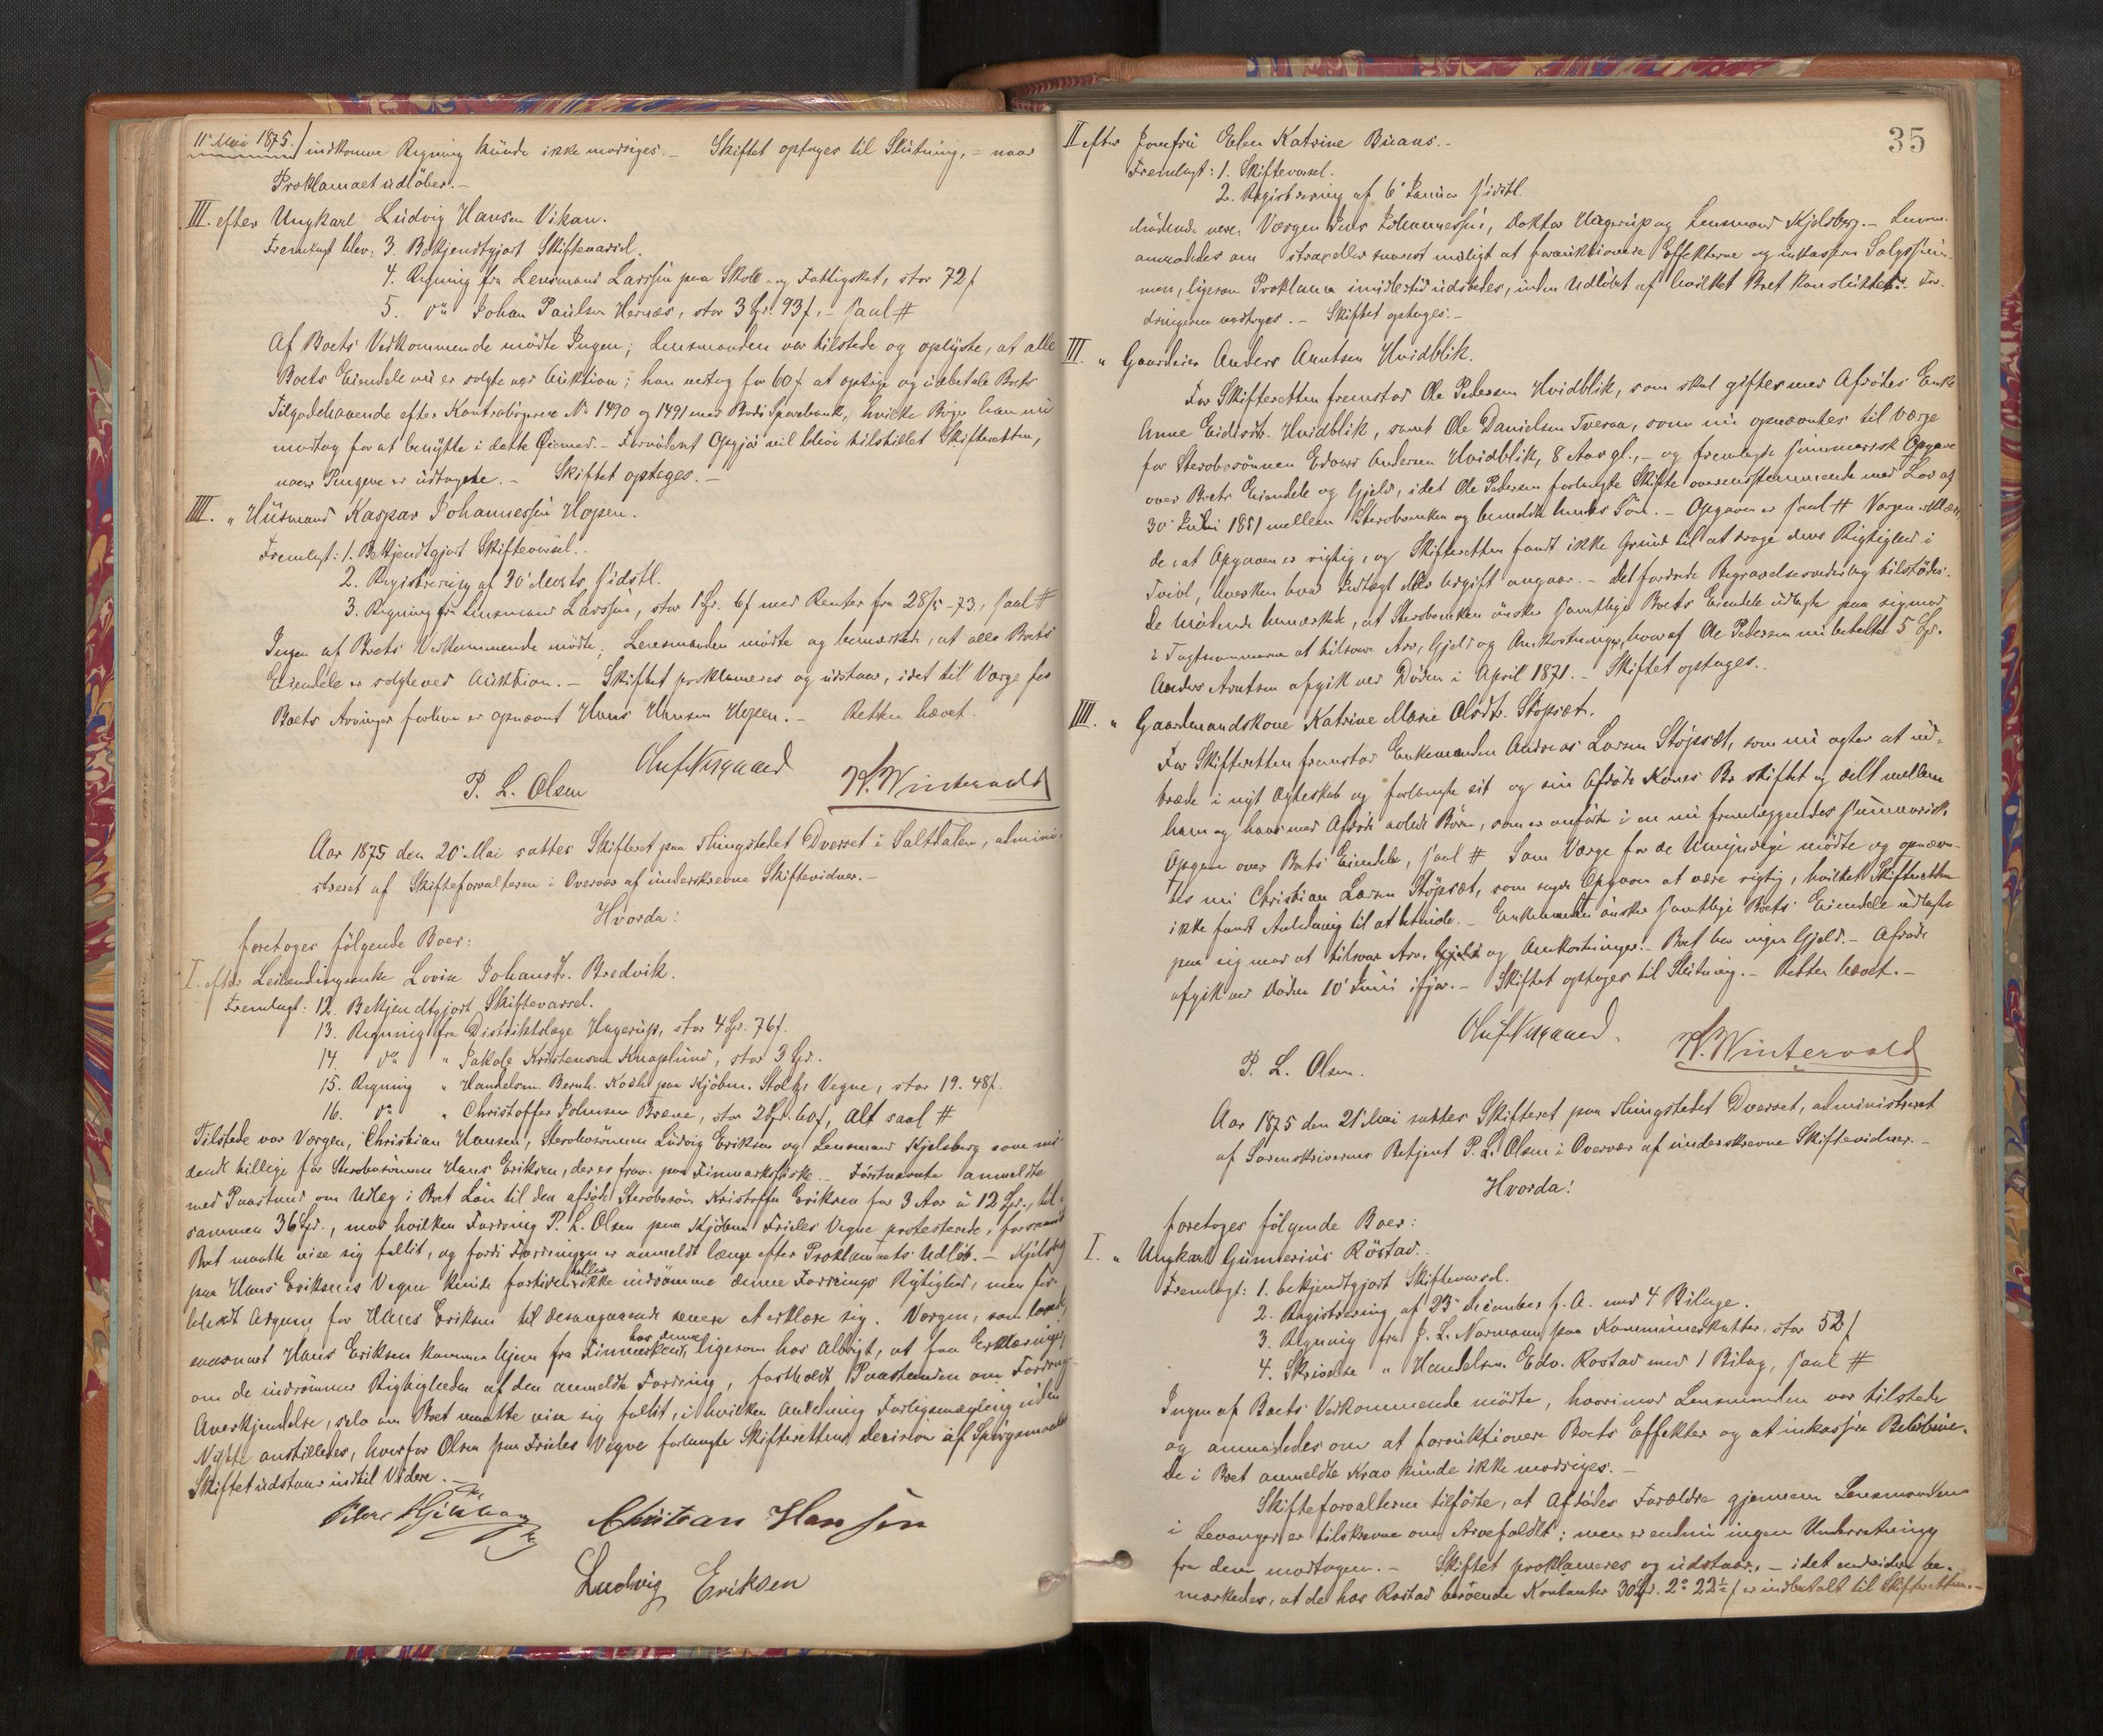 11' Mai 1875. / indkomne Regning kunde ikke modsiges. – Skiftet optages til Slutning, – naar
Proklamaet udlöber. –
III. efter Ungkarl Ludvig Hansen Vikan.
Fremlagt blev: 3. Bekjendtgjort Skiftevarsel.
4. Regning fra Lensmand Larssen paa Skole- og Fattigskat, stor 72 f
5. do Johan Paulsen Hernæs, stor 3 Spd. 93 f. – saal #
Af Boets Vedkommende mödte Ingen; Lensmanden var tilstede og oplyste, at alle
Boets Eiendele nu er solgte ved Auktion; han vedtog for 60 f at opsige og udbetale Boets
Tilgodehavende efter Kontrabögerne No 1490 og 1491 med Bodö Sparebank, hvilke Böger han nu
modtog for at benytte i dette Öiemed. – Fornödent Opgjör vil blive tilstillet Skifteretten,
naar Pengene er udtagne. – Skiftet optages. –
IIII. " Husmand Kaspar Johannessen Hopen.
Fremlagt: 1. Bekjendtgjort Skiftevarsel.
2. Registrering af 30' Marts sidstl.
3. Regning fra Lensmand Larssen, stor 1 Spd. 6 f med Renter fra 28/5 – 73, saal #
Ingen af Boets Vedkommende mödte. Lensmanden mödte og bemærkede, at alle Boets
Eiendele er solgte ved Auktion. – Skiftet proklameres og udstaar, idet til Værge for
Boets Arvinger forhen er opnævnt Hans Hansen Hopen. – Retten hævet.
P. L. Olsen
H. Wintervold
Aar 1875 den 20' Mai sattes Skifteret paa Thingstedet Dverset i Saltdalen, admini-
streret af Skifteforvalteren i Overvær af underskrevne Skiftevidner. –
Hvorda:
foretoges fölgende Boer:
I. efter Leilændingenke Lovise Johansdtr. Bredvik.
Fremlagt: 12. Bekjendtgjort Skiftevarsel.
13. Regning fra Distriktslæge Hagerup, stor 4 Spd. 76 f.
14. do " Jakob Kristensen Knaplund, stor 3 Spd.
15. Regning " Handelsm. Bernh. Koch paa Kjöbm. Stoltz's Vegne, stor 19. 48 f.
16. do " Christoffer Johnsen Bræne, stor 2 Spd. 60 f, alt saal #
Tilstede var Værgen, Christian Hansen, Sterbosönnen Ludvig Eriksen og Lensmand Kjelsberg som mö-
dende tillige for Sterbosönnen Hans Eriksen, der er frav. paa Finmarksfiske. – Förstnævnte anmeldte
med Paastand om Udlæg i Boet Lön til den afdöde Sterbosön Kristoffer Eriksen for 3 Aar à 12 Spd., til-
sammen 36 Spd., mod hvilken Fordring P. L. Olsen paa Kjöbm. Frieles Vegne protesterede, forsaavidt
Boet maatte vise sig fallit, og fordi Fordringen er anmeldt længe efter Proklamaets Udlöb. – Kjelsberg
paa Hans Eriksens Vegne kunde fortiden heller ikke indrömme denne Fordrings Rigtighed, men for-
beholdt Adgang for Hans Eriksen til desangaaende senere at erklære sig. Værgen, som lovede
saasnart Hans Eriksen kommer hjem fra Finmarken, hos denne ligesom hos Albrigt, at faa Erklæringer
om de indrömmer Rigtigheden af den anmeldte Fordring, fastholdt Paastanden om Fordrings-
Anerkjendelse, selv om Boet maatte vise sig fallit, i hvilken Anledning Forligsmægling uden
Nytte anstilledes, hvorfor Olsen paa Frieles Vegne forlangte Skifterettens Decision af Spörgsmaalet
Skiftet udstaar indtil Videre. –
Christian Hansen
Ludvig Eriksen
35
II efter Jomfru Elen Katrine Buaas. –
Fremlagt: 1. Skiftevarsel.
2. Registrering af 6' Januar sidstl.
Mödende vare: Værgen Jens Johannessen, Doktor Hagerup og Lensmand Kjelsberg. – Lensm.
anmodedes om strax eller snarest muligt at forauktionere Effekterne og inkassere Salgssum-
men, ligesom Proklama imidlertid udstedes, inden Udlöbet af hvilket Boet kan sluttes. – For-
dringerne vedtoges. – Skiftet optages. –
III. " Gaardeier Anders Arntsen Hvidblik.
For Skifteretten fremstod Ole Pedersen Hvidblik, som skal giftes med Afdödes Enke
Anne Eidisdtr. Hvidblik, samt Ole Danielsen Tveraa, som nu opnævntes til Værge
for Sterbosönnen Edvard Andersen Hvidblik, 8 Aar gl., – og fremlagde summarisk Opgave
over Boets Eiendele og Gjeld, idet Ole Pedersen forlangte Skifte overensstemmende med Lov af
30' Juli 1851 mellem Sterboenken og bemeldte hendes Sön. – Opgaven er saal # Værgen erklære-
de, at Opgaven er rigtig, og Skifteretten fandt ikke Grund til at drage dens Rigtighed i
Tvivl, hverken hvad Indtægt eller Udgift angaar. – Det fornödne Begravelsesvederlag tilstodes.
De Mödende bemærkede, at Sterboenken önsker samtlige Boets Eiendele udlagte paa sig mod
i Tagtnummeren at tilsvare Arv, Gjeld og Omkostninger, hvoraf Ole Pedersen nu betalte 5 Spd.
Anders Arntsen afgik ved Döden i April 1871. – Skiftet optages. –
IIII. " Gaardmandskone Katrine Marie Olsdtr. Stöpsæt.
For Skifteretten fremstod Enkemanden Andreas Larsen Stöpsæt, som nu agter at ind-
træde i nyt Ægteskab og forlangte sit og sin Afdöde Kones Bo skiftet og delt mellem
ham og hans med Afdöde avlede Börn, som er anförte i en nu fremlæggendes summarisk
Opgave over Boets Eiendele, saal # Som Værge for de Umyndige mödte og opnævn-
tes nu Christian Larsen Stöpsæt, som sagde Opgaven at være rigtig, hvilket Skifteretten
ikke fandt Anledning til at betvivle. – Enkemanden önsker samtlige Boets Eiendele udlagte
paa sig mod at tilsvare Arv, Gjeld og Omkostninger. – Boet har ingen Gjeld. – Afdöde
afgik ved Döden 10' Juni ifjor. – Skiftet optages til Slutning. – Retten hævet. –
P. L. Olsen.
H. Wintervold
Aar 1875 den 21' Mai sattes Skifteret paa Thingstedet Dverset, administreret
af Sorenskriverens Betjent P. L. Olsen i Overvær af underskrevne Skiftevidner. –
Hvorda:
foretoges fölgende Boer:
I. " Ungkarl Gunnerius Röstad.
Fremlagt: 1. bekjendtgjort Skiftevarsel.
2. Registrering af 23' December f. A. med 4 Bilage.
3. Regning fra J. L. Normann paa Kommuneskatter, stor 52 f
4. Skrivelse " Handelsm. Edv. Rostad med 1 Bilag, saal #
Ingen af Boets Vedkommende mödte, hvorimod Lensmanden var tilstede
og anmodedes om at forauktionere Boets Effekter og at inkassere Belöbene.
De i Boet anmeldte Krav kunde ikke modsiges. –
Skifteforvalteren tilförte, at Afdödes Forældre gjennem Lensmanden
i Levanger er tilskrevne om Arvefaldet; men er endnu ingen Underretning
fra dem modtagen. – Skiftet proklameres og udstaar, – idet endvidere be-
mærkedes, at de hos Rostad beroende Kontanter 30 Spd. 2 o 22 1/2 f er indbetalt til Skifteretten. –